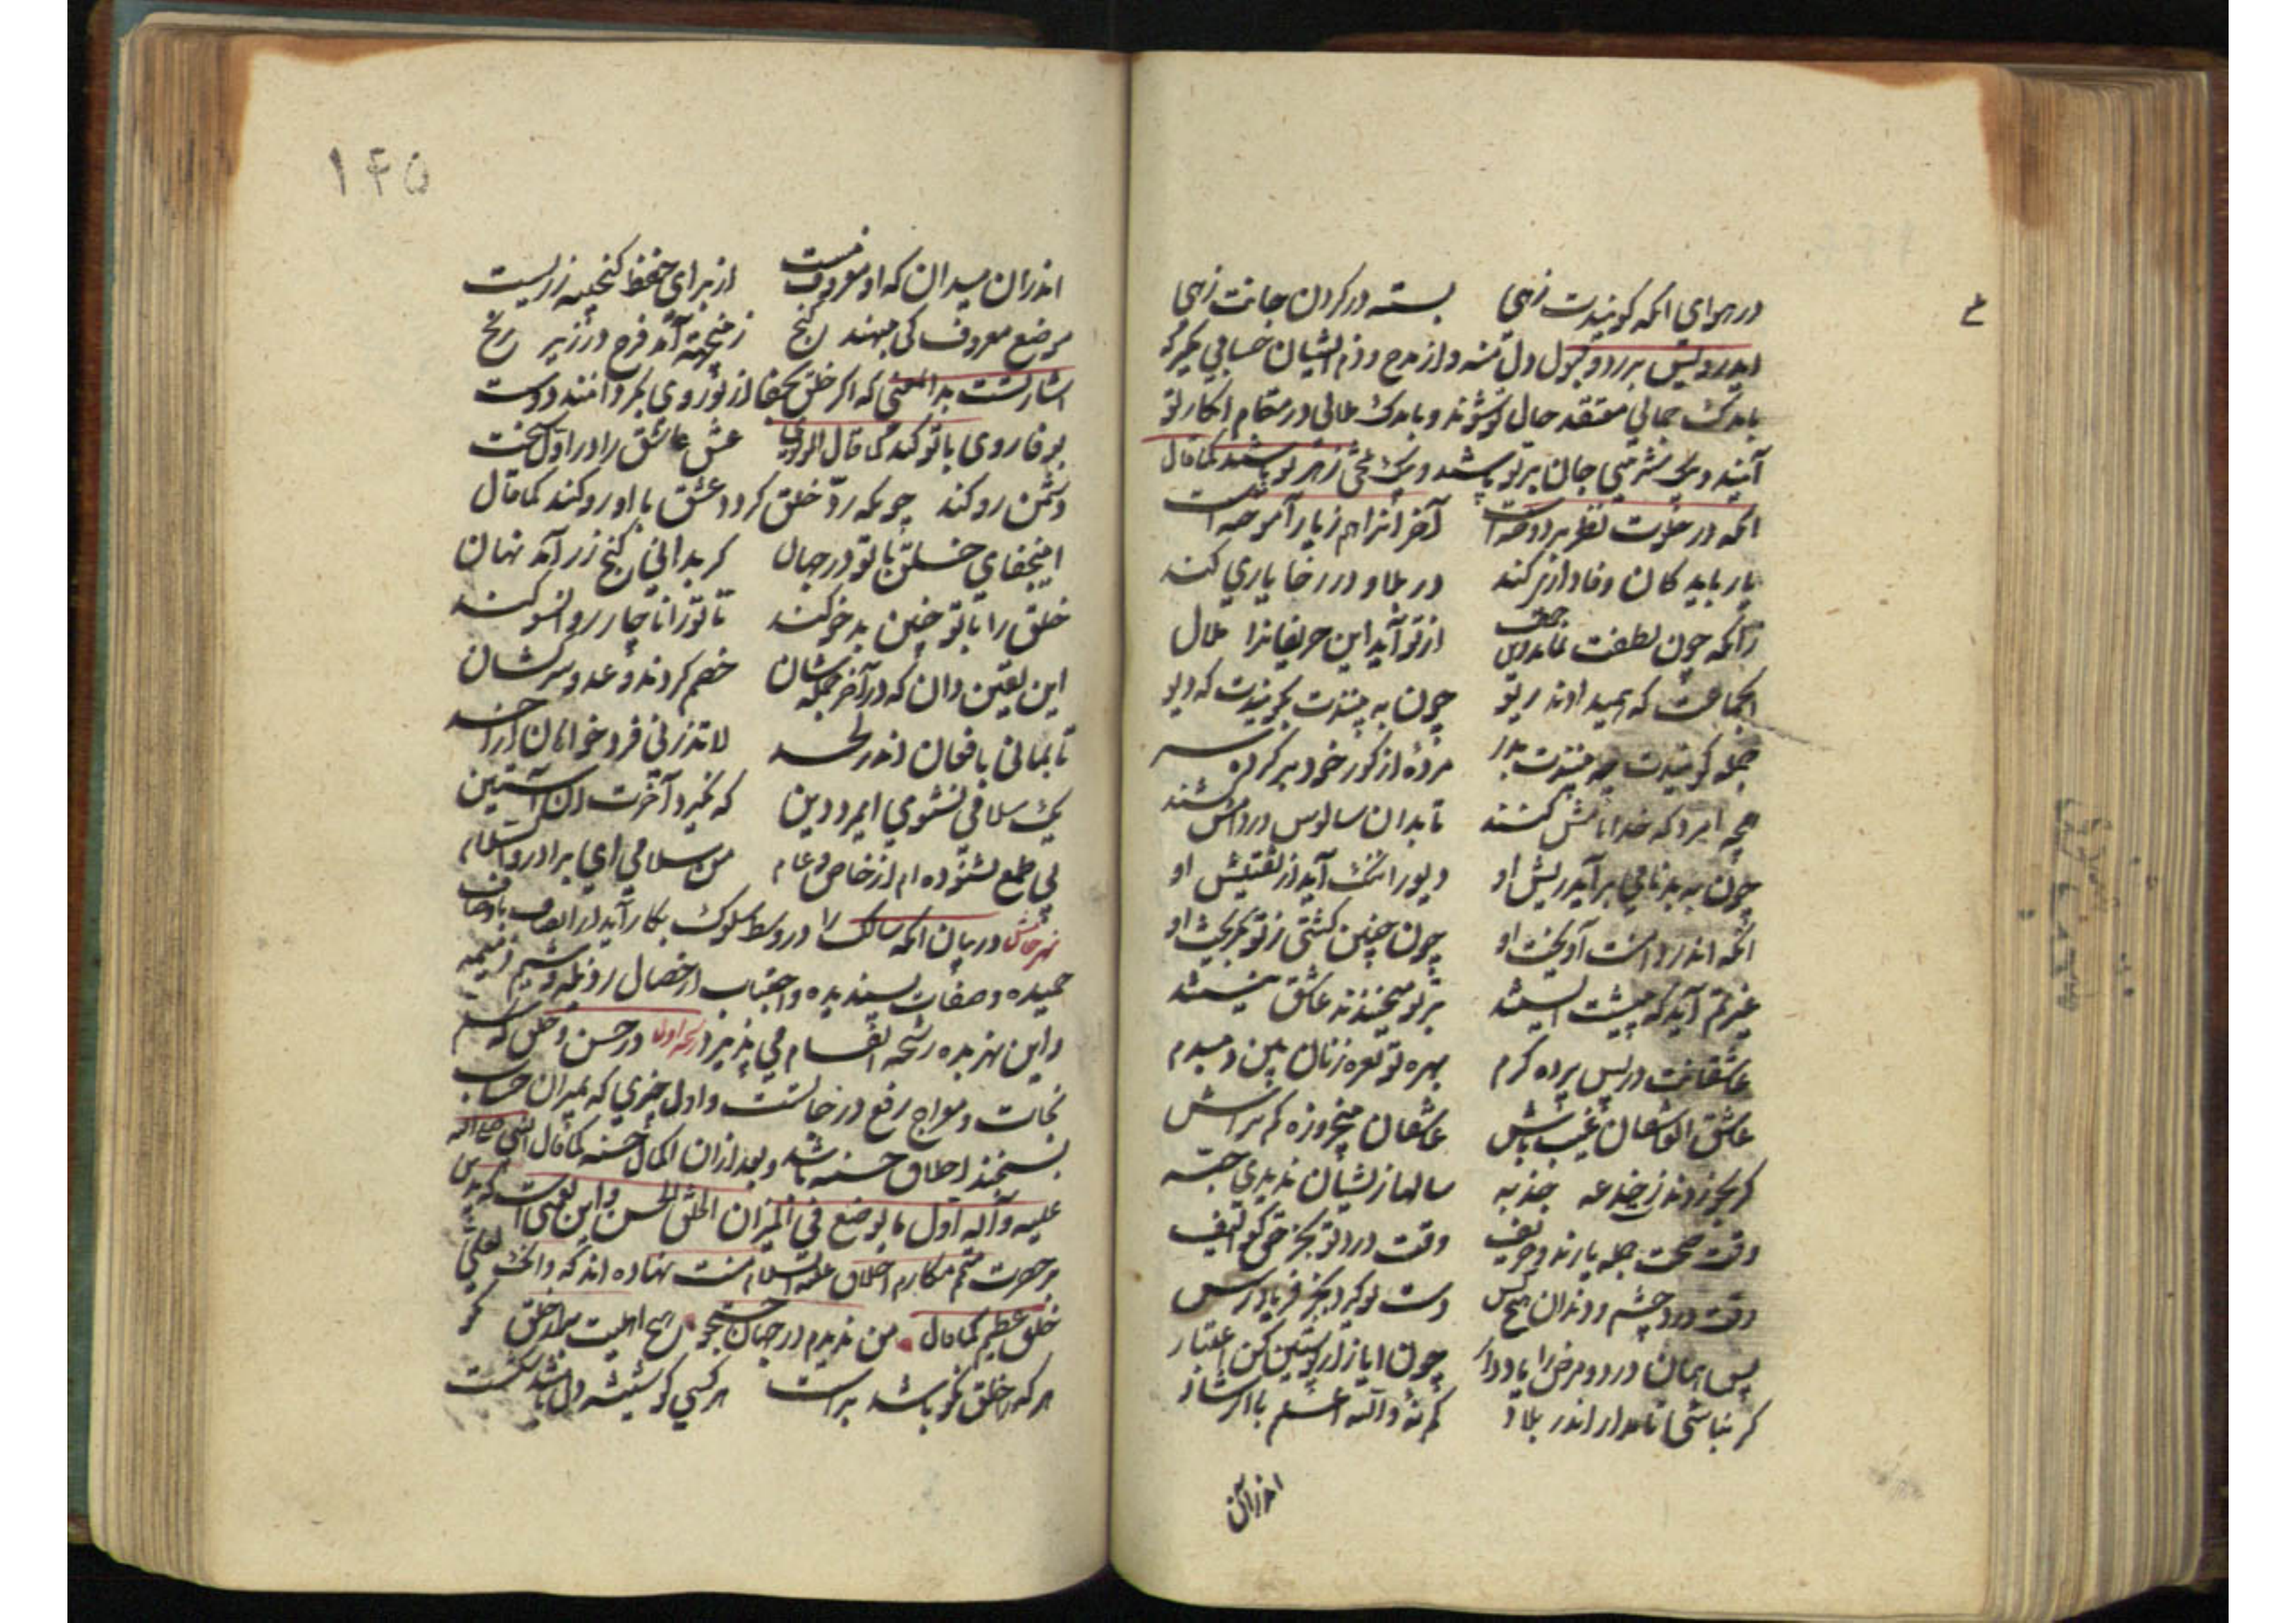 در هوای آنکه گویندت زهی بسته در گردن جانت زهی
ای درویش برد و قبول دل منه و از مدح و ذم ایشان حسابی مگیر که
باندک جمالی معتقد حال تو شوند و باندک ملالی در مقام انکار تو
آیند و بیک شربتی جان بر تو پاشند و بیک تلخی زهر تو باشند کما قال
آنکه در خلوت نظر بر دوخته است آخر آنرا هم ز یار آموخته است
یار باید کان وفا داری کند در بلا و در رخا یاری کند
زانکه چون لطفت نماند وین جمال از تو آید این حریفانرا ملال
آنجماعت که همیدادند ریو چون به بینندت بگویندت که دیو
جمله گویندت چو بینندت بدر مرده از گور خود بر کرده سر
همچو امرد که خدا نامش کنند تا بدان سالوس در دامش کنند
چون به بدنامی برآید ریش او دیو را ننگ آید از تفتیش او
آنکه اندر دامنت آویخت او چون چنین گشتی ز تو بگریخت او
غیرتم آید که پیشت ایستند بر تو میخندند عاشق نیستند
عاشقانت در پس پرده کرم بهر تو نعره زنان بین دمبدم
عاشق آنعاشقان غیب باش عاشقان پنج روزه کم تراش
که بخوردندت ز خدعه جذبه سالها زیشان ندیدی حبه
وقت صحت جمله یارند و حریف وقت درد تو بجز حق کو الیف
وقت درد چشم و دندان هیچ کس دست تو گیرد بجز فریادرس
پس همان درد و مرض را یاد دار چون ایاز از پوستین کن اعتبار
گر نباشی نامدار اندر بلاد گم نه والله اعلم بالرشاد
اندر آن
۱۴۵
اندر آن میدان که او معروف نیست از برای حفظ گنجینه زریست
موضع معروف کی بنهند گنج زینجهة آمد فرج در زیر رنج
اشارتست بدانمعنی که اگر خلق بجفا از تو روی بگردانند دوست
بوفا روی با تو کند کما قال المولوی عشق عاشق را در اول سخت
دشمن رو کند چونکه رد خلق گردد عشق با او رو کند کما قال
اینجفای خلق با تو در جهان گر بدانی گنج زر آمد نهان
خلق را با تو چنین بدخو کند تا تو را ناچار رو آنسو کند
این یقین دان که در آخر جمله شان خصم گردند و عدو و سرکشان
تا بمانی با فغان اندر لحد لا تذرنی فرد خواهان از احد
یک سلامی نشنوی ایمرد دین که نگیرد آخرت آن آستین
بی طمع نشنوده ام از خاص و عام من سلامی ای برادر والسلام
نهر خامس در بیان آنکه سالک را در وسط سلوک بکار آید از اتصاف باوصاف
حمیده و صفات پسندیده و اجتناب از خصال رذیله و شیم ذمیمه
و این نهر بده رشحه انقسام می پذیرد رشحه اولی در حسن و خلق که سلم
نجات و معراج رفع درجاتست و اول چیزی که بمیزان حساب
بسنجند اخلاق حسنه باشد و بعد از آن اعمال حسنه کما قال النبی صلی الله
علیه و آله اول ما یوضع فی المیزان الخلق الحسن و این نعتی است که بدین
بر حضرت متمم مکارم اخلاق علیه السلام منت نهاده اند که وانک لعلی
خلق عظیم کما قال من ندیدم در جهان جستجو هیچ اهلیت به از خلق نکو
هر که را خلق نکو باشد برست هر کسی کو شیشه دل باشد شکست